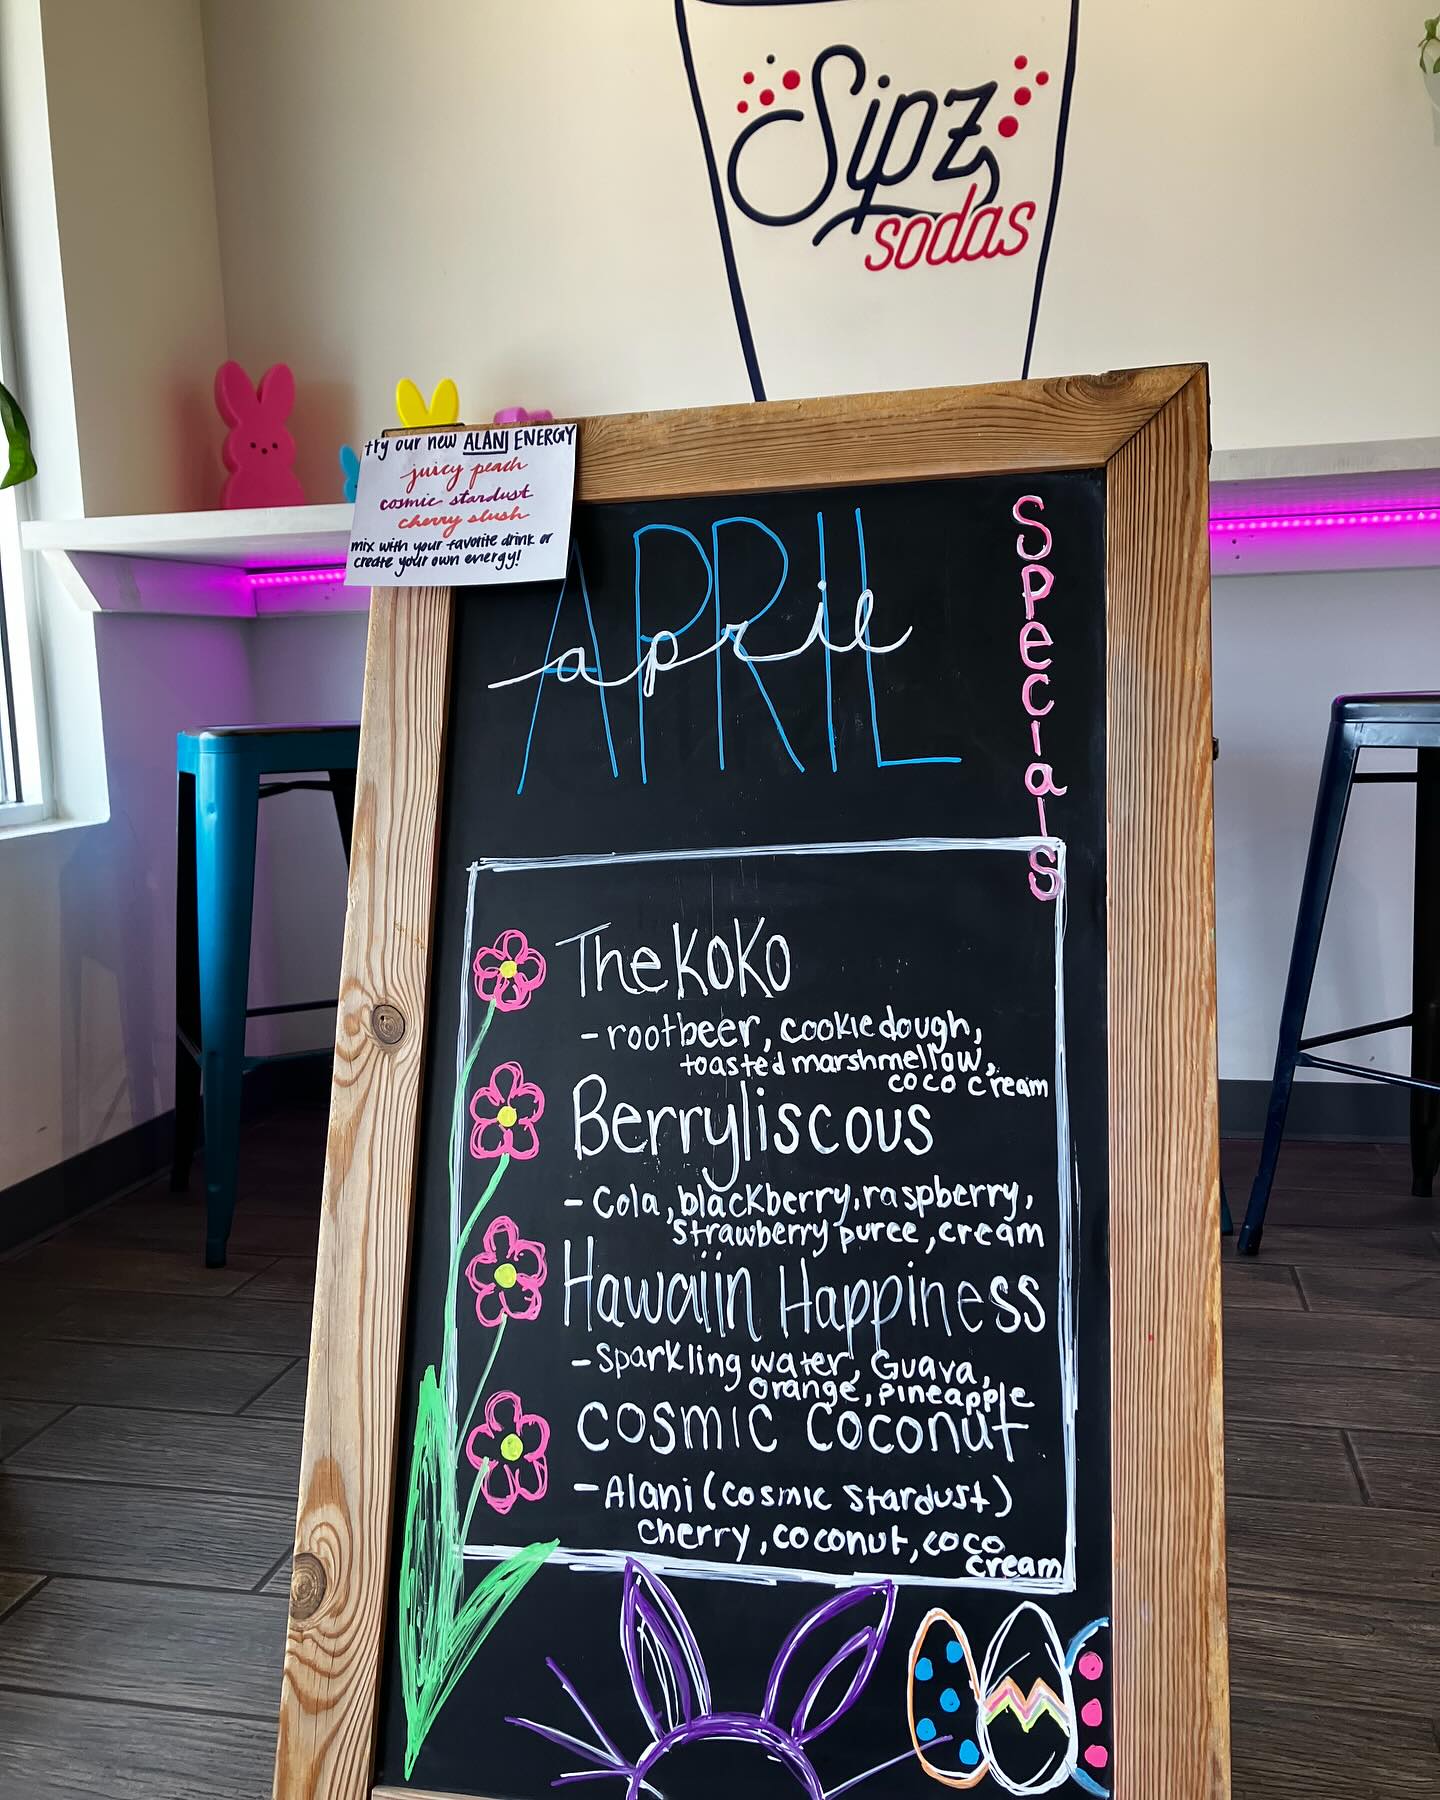 Sipz
sodas
try our new ALANI ENERGY
juicy peach
cosmic stardust
cherry slush
mix with your favorite drink or
create your own energy!
APRIL
april
Specials
The KoKo
- rootbeer, cookie dough,
toasted marshmellow,
coco cream
Berryliscous
- Cola, blackberry, raspberry,
strawberry puree, cream
Hawaiin Happiness
- Sparkling water, Guava,
orange, pineapple
cosmic coconut
- Alani (cosmic stardust)
cherry, coconut, coco
cream